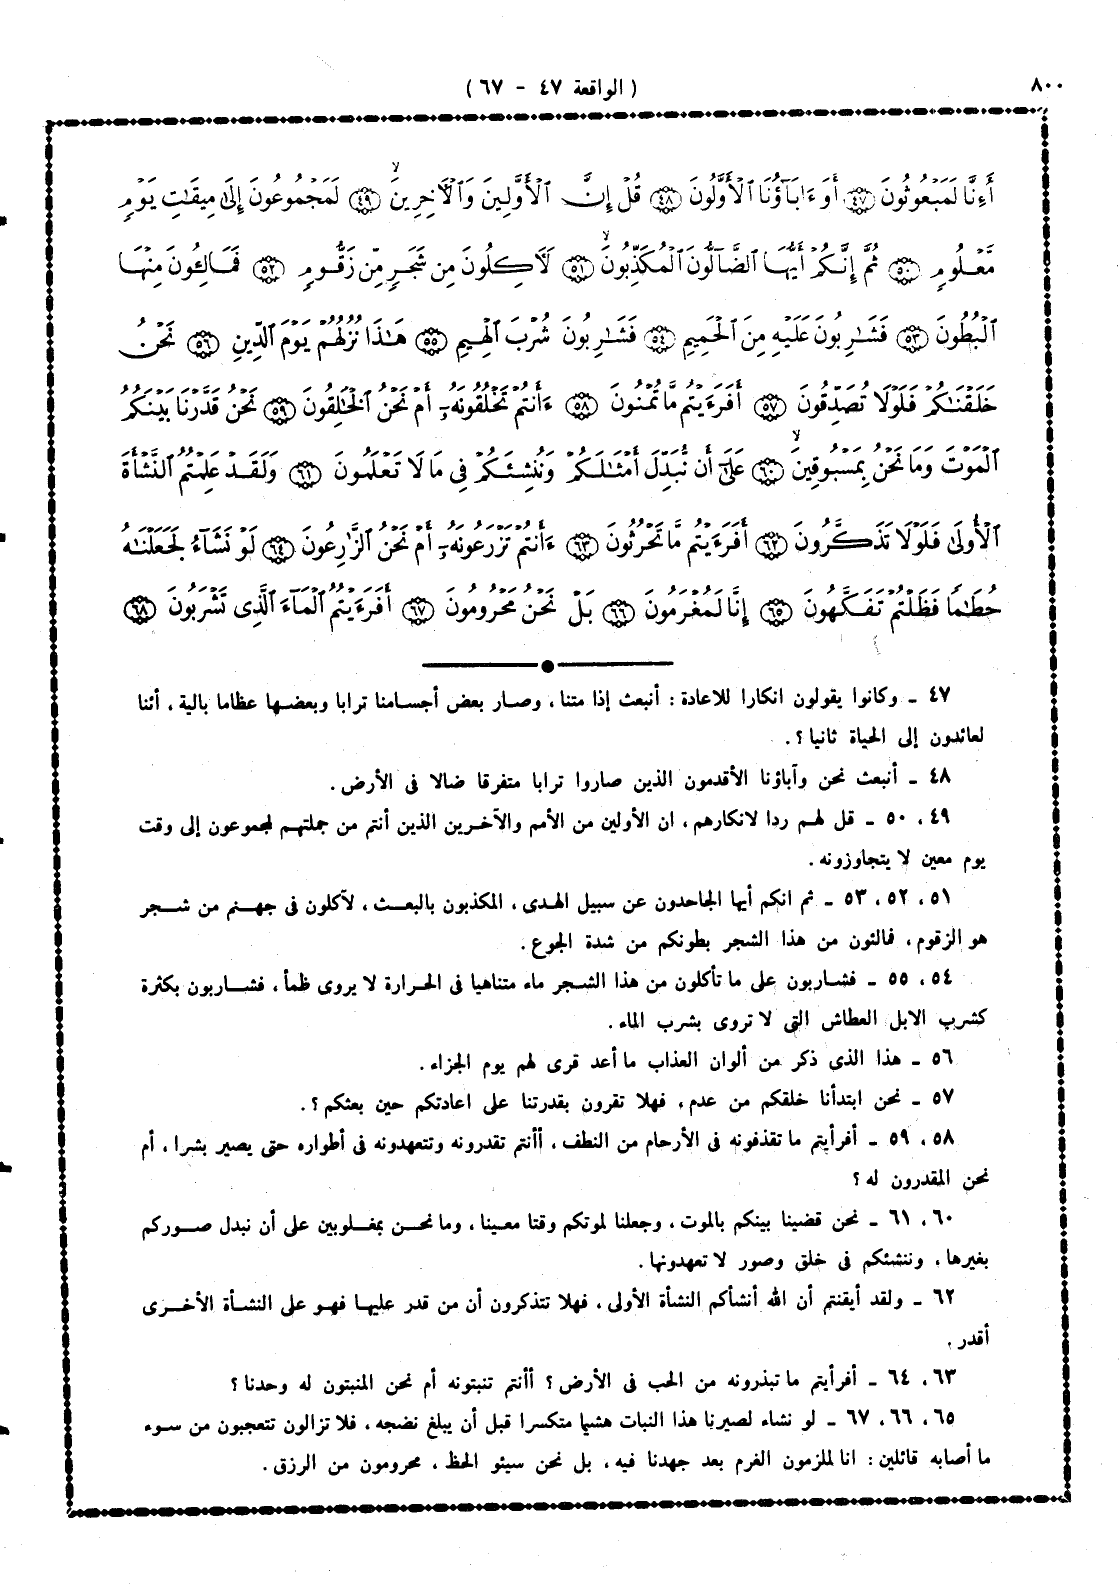 ٨٠٠
( الواقعة ٤٧ - ٦٧ )
أَءِنَّا لَمَبْعُوثُونَ ٤٧ أَوَ ءَابَآؤُنَا ٱلْأَوَّلُونَ ٤٨ قُلْ إِنَّ ٱلْأَوَّلِينَ وَٱلْآخِرِينَ ٤٩ لَمَجْمُوعُونَ إِلَىٰ مِيقَٰتِ يَوْمٍ
مَّعْلُومٍ ٥٠ ثُمَّ إِنَّكُمْ أَيُّهَا ٱلضَّآلُّونَ ٱلْمُكَذِّبُونَ ٥١ لَآكِلُونَ مِن شَجَرٍ مِّن زَقُّومٍ ٥٢ فَمَالِـُٔونَ مِنْهَا
ٱلْبُطُونَ ٥٣ فَشَٰرِبُونَ عَلَيْهِ مِنَ ٱلْحَمِيمِ ٥٤ فَشَٰرِبُونَ شُرْبَ ٱلْهِيمِ ٥٥ هَٰذَا نُزُلُهُمْ يَوْمَ ٱلدِّينِ ٥٦ نَحْنُ
خَلَقْنَٰكُمْ فَلَوْلَا تُصَدِّقُونَ ٥٧ أَفَرَءَيْتُم مَّا تُمْنُونَ ٥٨ ءَأَنتُمْ تَخْلُقُونَهُۥٓ أَمْ نَحْنُ ٱلْخَٰلِقُونَ ٥٩ نَحْنُ قَدَّرْنَا بَيْنَكُمُ
ٱلْمَوْتَ وَمَا نَحْنُ بِمَسْبُوقِينَ ٦٠ عَلَىٰٓ أَن نُّبَدِّلَ أَمْثَٰلَكُمْ وَنُنشِئَكُمْ فِى مَا لَا تَعْلَمُونَ ٦١ وَلَقَدْ عَلِمْتُمُ ٱلنَّشْأَةَ
ٱلْأُولَىٰ فَلَوْلَا تَذَكَّرُونَ ٦٢ أَفَرَءَيْتُم مَّا تَحْرُثُونَ ٦٣ ءَأَنتُمْ تَزْرَعُونَهُۥٓ أَمْ نَحْنُ ٱلزَّٰرِعُونَ ٦٤ لَوْ نَشَآءُ لَجَعَلْنَٰهُ
حُطَٰمًا فَظَلْتُمْ تَفَكَّهُونَ ٦٥ إِنَّا لَمُغْرَمُونَ ٦٦ بَلْ نَحْنُ مَحْرُومُونَ ٦٧ أَفَرَءَيْتُمُ ٱلْمَآءَ ٱلَّذِى تَشْرَبُونَ ٦٨
٤٧ ـ وكانوا يقولون انكارا للاعادة : أنبعث إذا متنا ، وصار بعض أجسامنا ترابا وبعضها عظاما بالية ، أئنا
لعائدون إلى الحياة ثانيا ؟ .
٤٨ ـ أنبعث نحن وآباؤنا الأقدمون الذين صاروا ترابا متفرقا ضالا فى الأرض .
٤٩ ، ٥٠ ـ قل لهم ردا لانكارهم ، ان الأولين من الأمم والآخرين الذين أنتم من جملتهم لمجموعون إلى وقت
يوم معين لا يتجاوزونه .
٥١ ، ٥٢ ، ٥٣ ـ ثم انكم أيها الجاحدون عن سبيل الهدى ، المكذبون بالبعث ، لآكلون فى جهنم من شجر
هو الزقوم ، فمالئون من هذا الشجر بطونكم من شدة الجوع .
٥٤ ، ٥٥ ـ فشاربون على ما تأكلون من هذا الشجر ماء متناهيا فى الحرارة لا يروى ظمأ ، فشاربون بكثرة
كشرب الابل العطاش التى لا تروى بشرب الماء .
٥٦ ـ هذا الذى ذكر من ألوان العذاب ما أعد قرى لهم يوم الجزاء .
٥٧ ـ نحن ابتدأنا خلقكم من عدم ، فهلا تقرون بقدرتنا على اعادتكم حين بعثكم ؟ .
٥٨ ، ٥٩ ـ أفرأيتم ما تقذفونه فى الأرحام من النطف ، أأنتم تقدرونه وتتعهدونه فى أطواره حتى يصير بشرا ، أم
نحن المقدرون له ؟
٦٠ ، ٦١ ـ نحن قضينا بينكم بالموت ، وجعلنا لموتكم وقتا معينا ، وما نحن بمغلوبين على أن نبدل صوركم
بغيرها ، وننشئكم فى خلق وصور لا تعهدونها .
٦٢ ـ ولقد أيقنتم أن الله أنشأكم النشأة الأولى ، فهلا تتذكرون أن من قدر عليها فهو على النشأة الأخرى
أقدر .
٦٣ ، ٦٤ ـ أفرأيتم ما تبذرونه من الحب فى الأرض ؟ أأنتم تنبتونه أم نحن المنبتون له وحدنا ؟
٦٥ ، ٦٦ ، ٦٧ ـ لو نشاء لصيرنا هذا النبات هشيما متكسرا قبل أن يبلغ نضجه ، فلا تزالون تتعجبون من سوء
ما أصابه قائلين : انا لملزمون الغرم بعد جهدنا فيه ، بل نحن سيئو الحظ ، محرومون من الرزق .